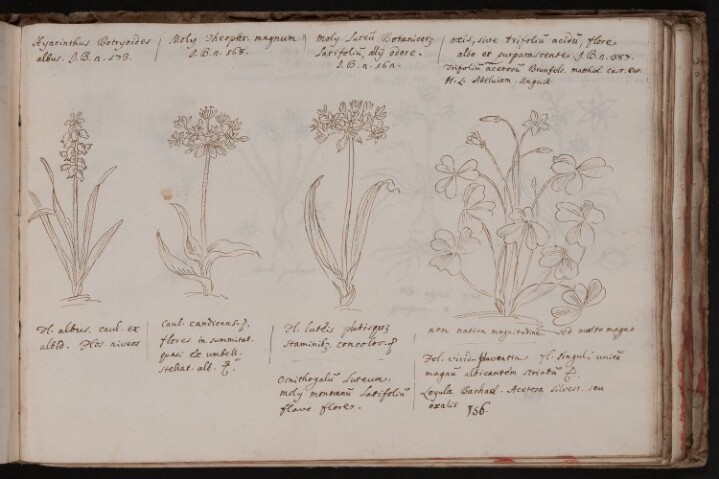 Hyacinthus Botryoides
albus. J.B. n. 573.
Moly Theophr. magnum
J.B. n. 568.
Moly Luteū Botanicorȝ
Latifoliū odore.
J.B. n.
oxis, sive Trifoliū acidū, flore
albo et purpurascente J.B. n. 387.
Trifoliū acetosū Brunfels. matthiol. cast.
Alleluiam.
Fl. albus. caul. ex
altid. Flos niveus
Caul. candicans
flores in summitat.
quasi umbell.
stellat. alt.
Fl. luteis
staminibȝ concolor.
Ornithogalū Luteum.
moly montanū Latifoliū
flavo flore.
non nativa magnitudine sed multo magno
Fol. Fl. singul. unicū
magnū albicantem striatū
Acetosa silvest. seu
oxalis
156.